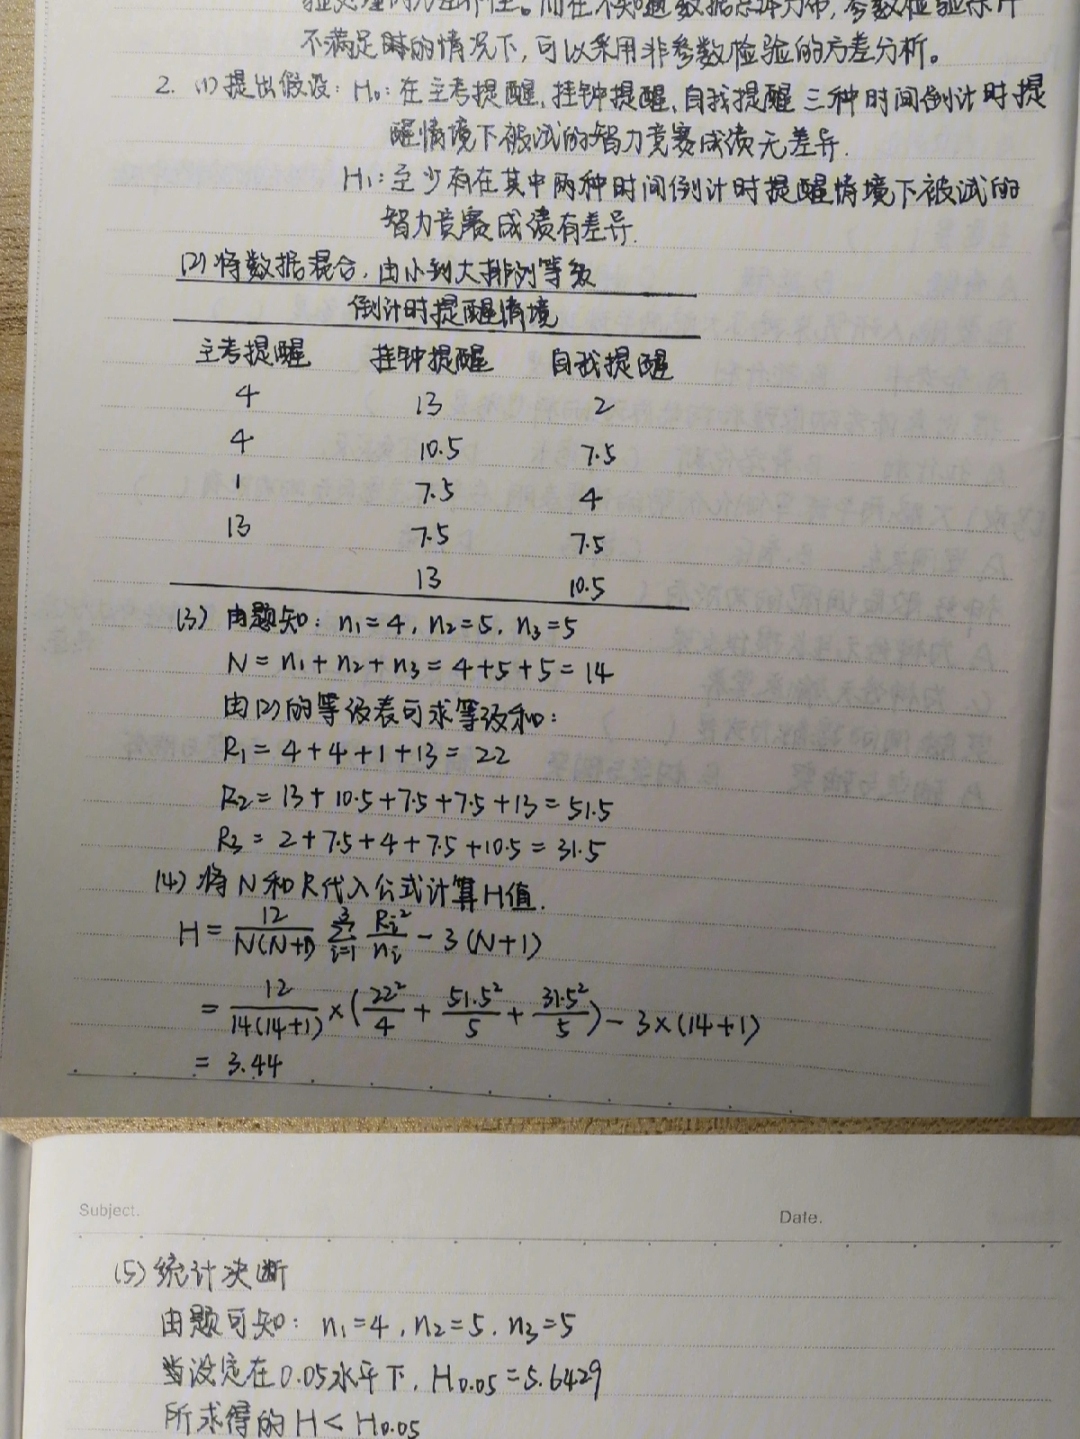 不满足时的情况下,可以采用非参数检验的方差分析。
2. (1)提出假设: H₀: 在主考提醒、挂钟提醒、自我提醒三种时间倒计时提
醒情境下被试的智力竞赛成绩无差异.
H₁: 至少有在其中两种时间倒计时提醒情境下被试的
智力竞赛成绩有差异.
(2)将数据混合,由小到大排列等级
倒计时提醒情境
主考提醒 挂钟提醒 自我提醒
4 13 2
4 10.5 7.5
1 7.5 4
13 7.5 7.5
13 10.5
(3) 由题知: n₁=4, n₂=5, n₃=5
N = n₁+n₂+n₃ = 4+5+5 = 14
由(2)的等级表可求等级和:
R₁ = 4+4+1+13 = 22
R₂ = 13+10.5+7.5+7.5+13 = 51.5
R₃ = 2+7.5+4+7.5+10.5 = 31.5
(4) 将N和R代入公式计算H值.
H = 12/N(N+1) ∑³ᵢ₌₁ Rᵢ²/nᵢ - 3(N+1)
= 12/14(14+1) × (22²/4 + 51.5²/5 + 31.5²/5) - 3×(14+1)
= 3.44
Subject.
Date.
(5) 统计决断
由题可知: n₁=4, n₂=5, n₃=5
当设定在0.05水平下, H₀.₀₅=5.6429
所求得的 H < H₀.₀₅